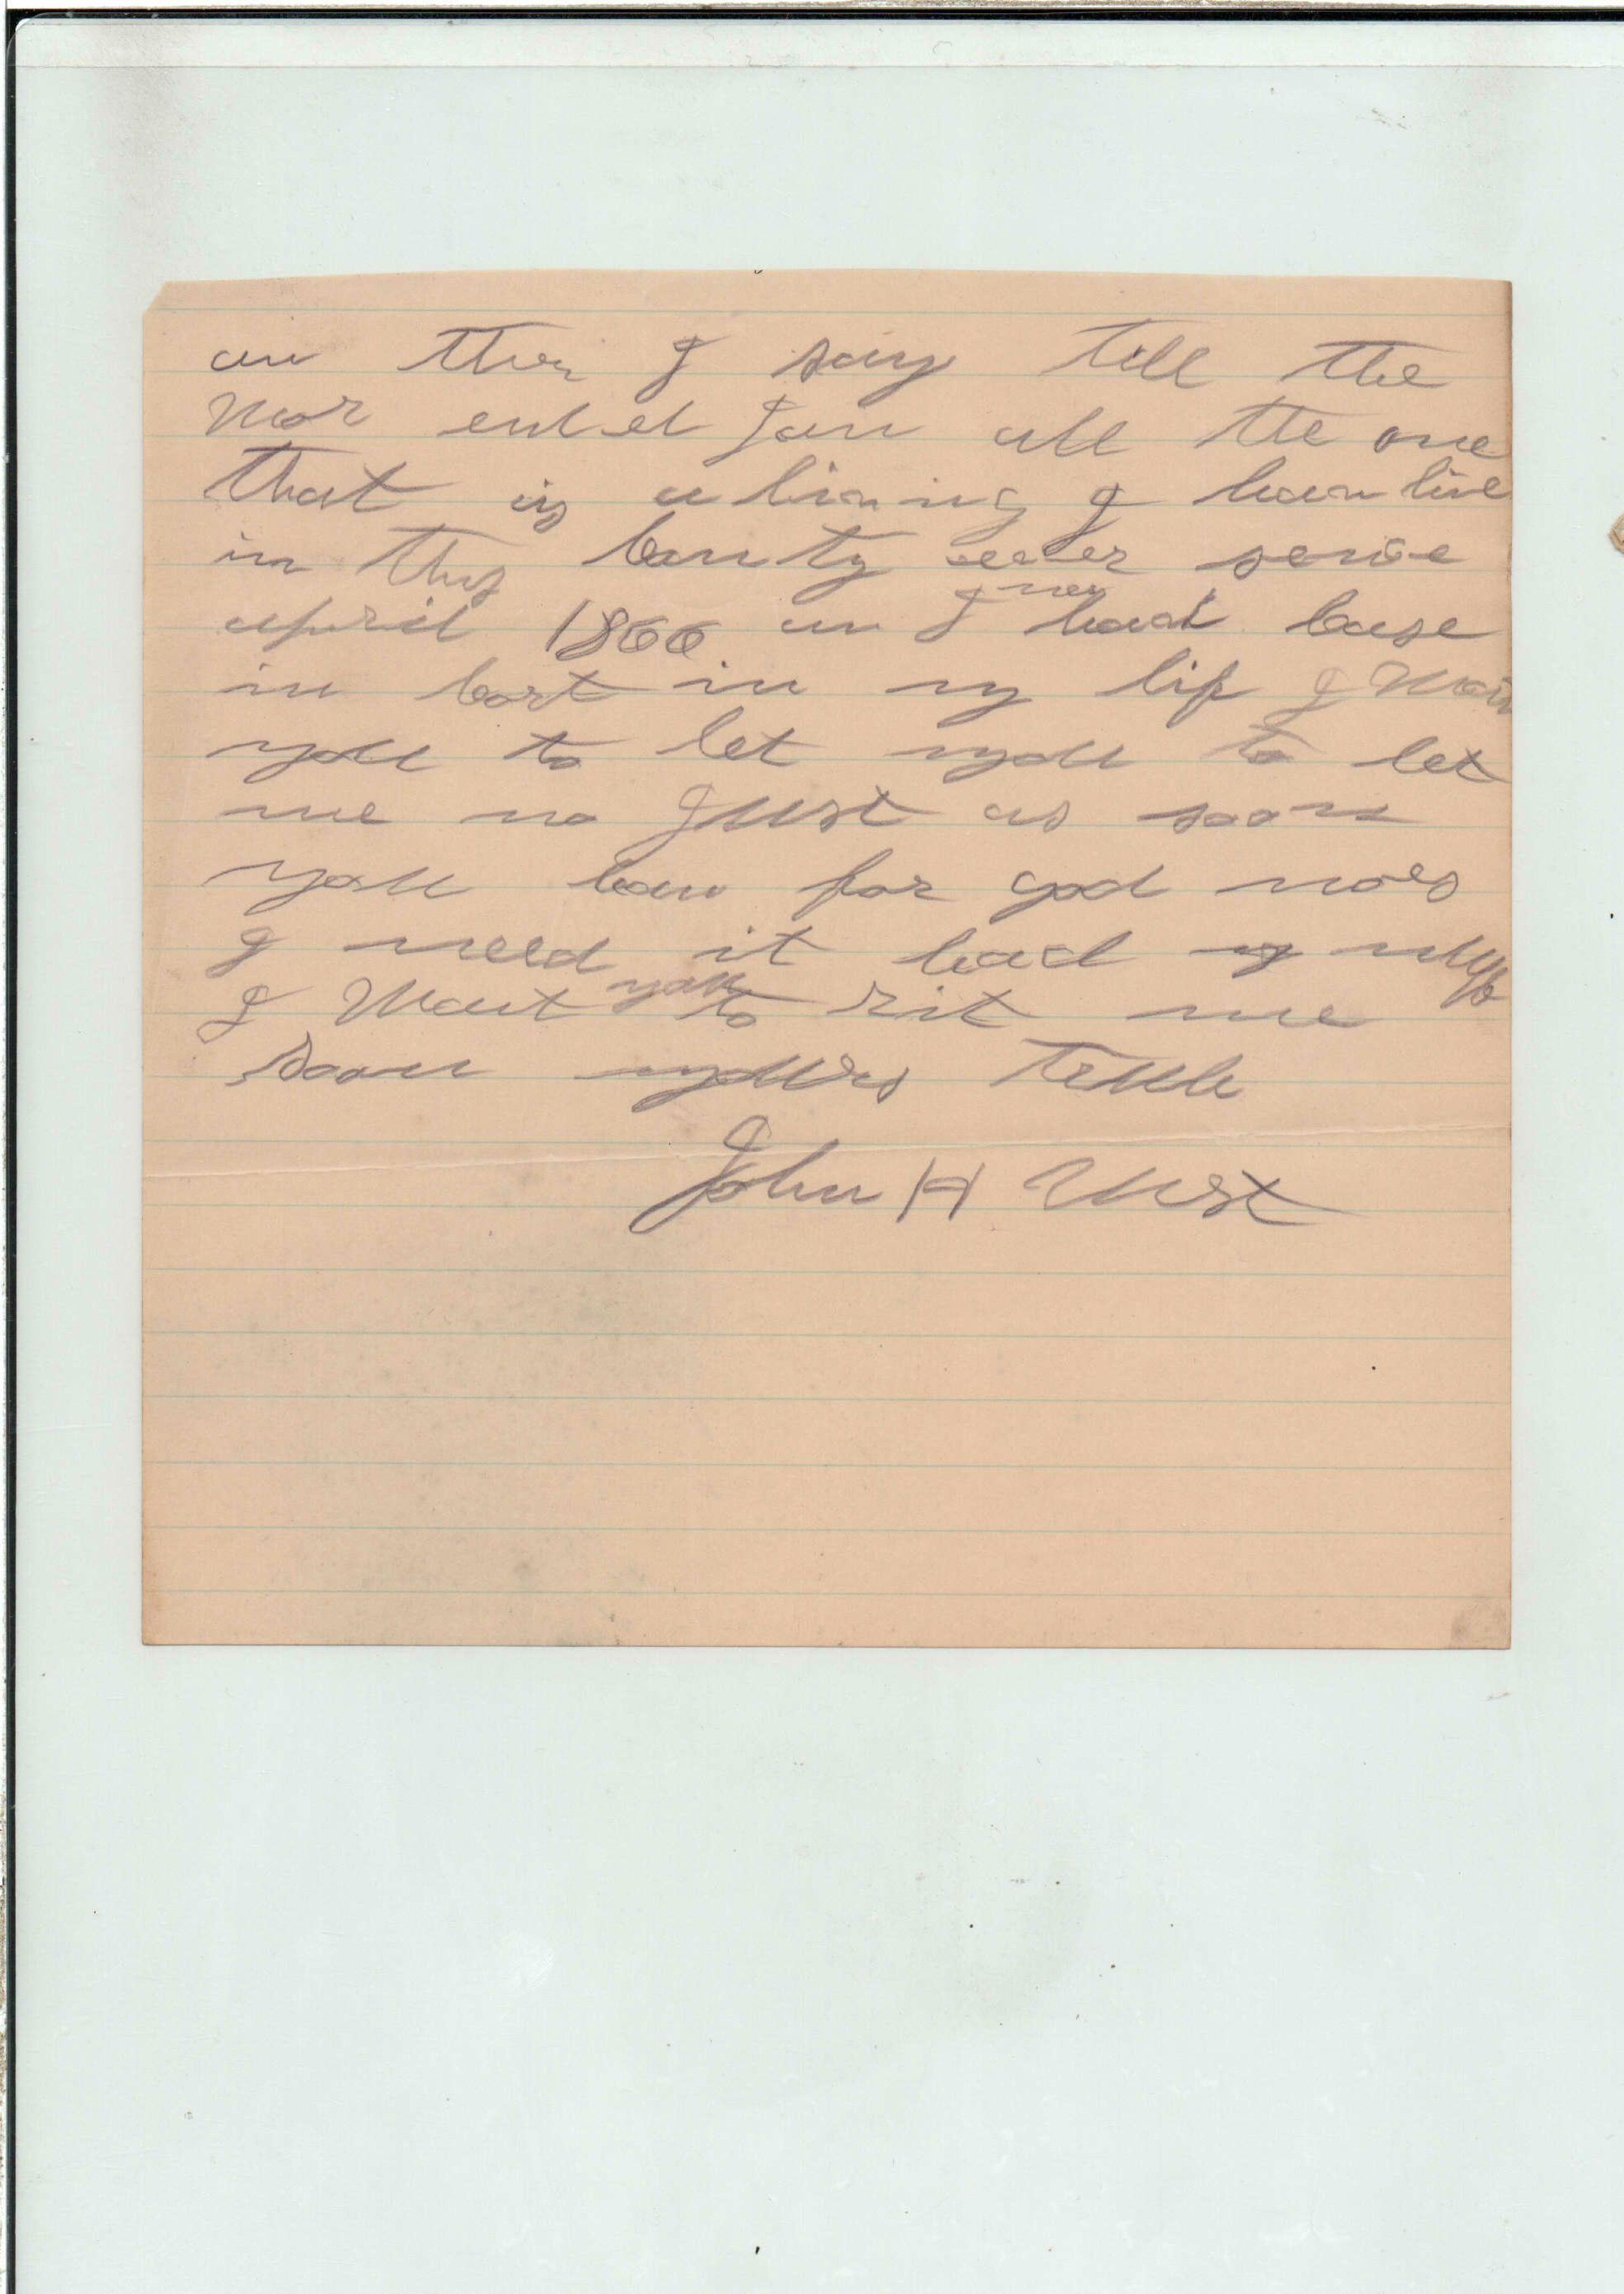 an then I say till the
Wor ended I am all the one
that is a living I hav live
in this County ever sence
april 1866 an I never had Case
in Cort in my lif I Wan
you to let you to let
me no Just as soon
you Can for god noes
I need it bad my self
I Want you to rit me
soon yours Truly
John H West